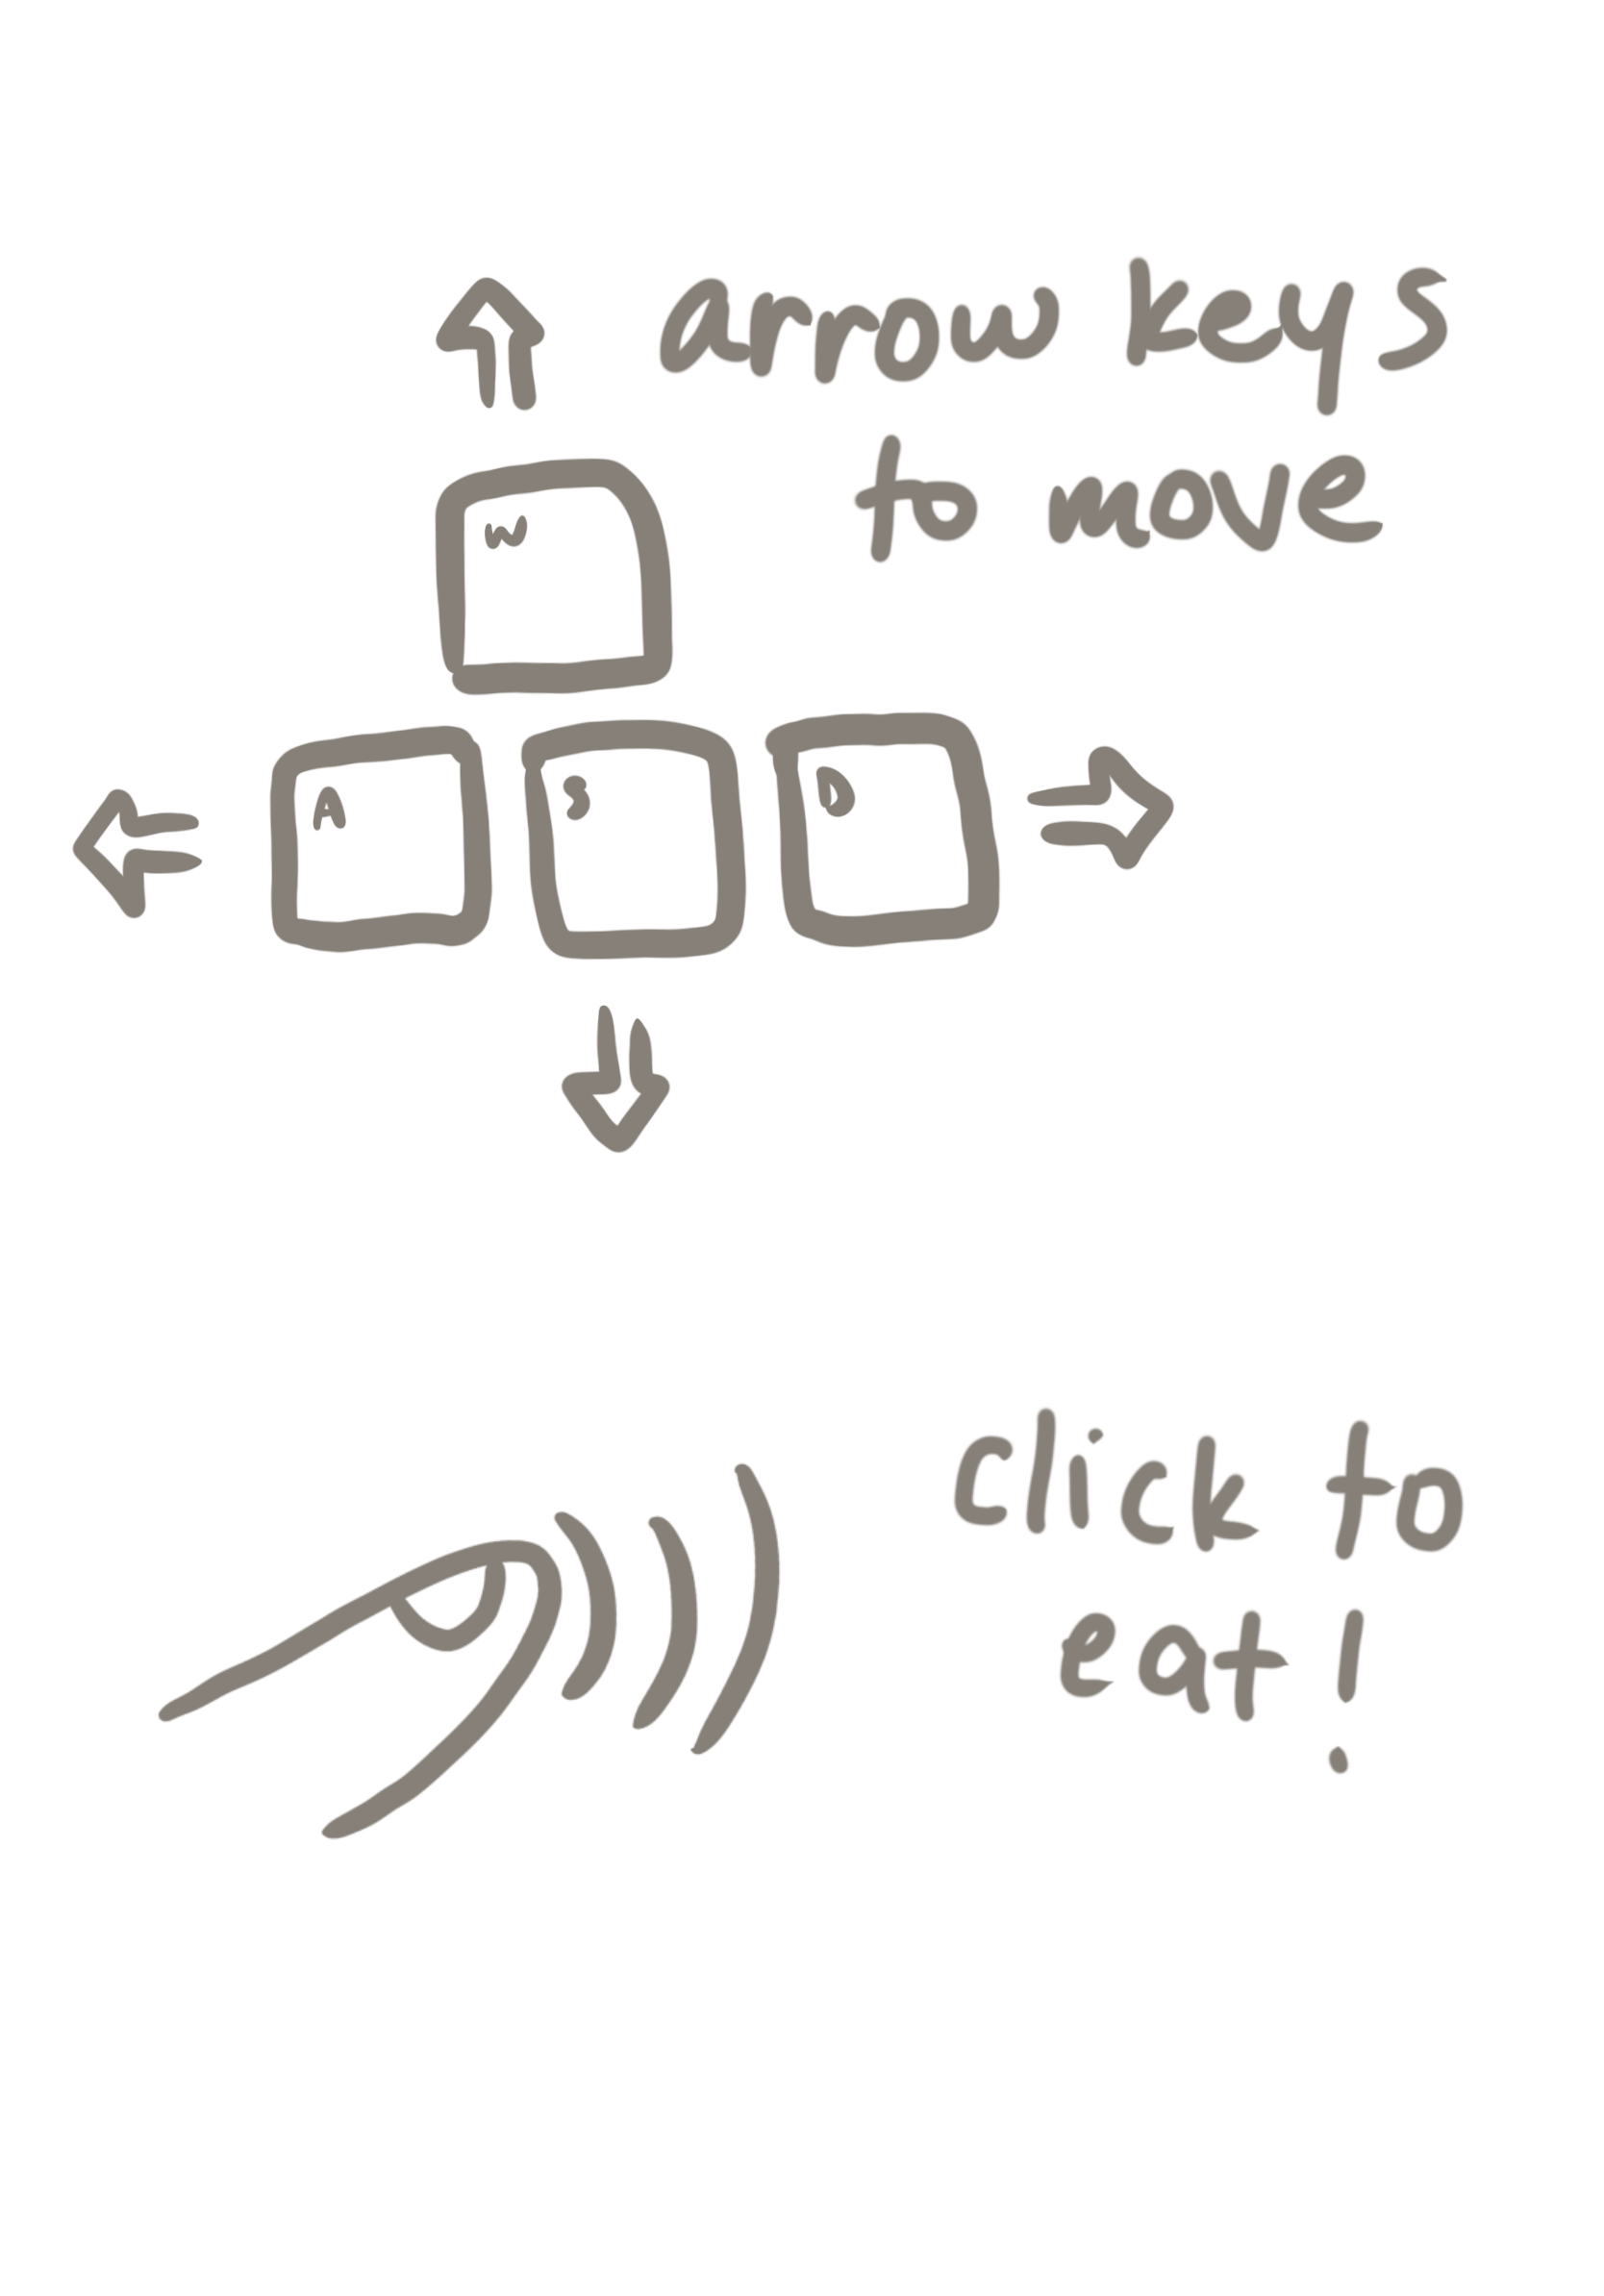 arrow keys
to move
W
A S D
click to
eat!